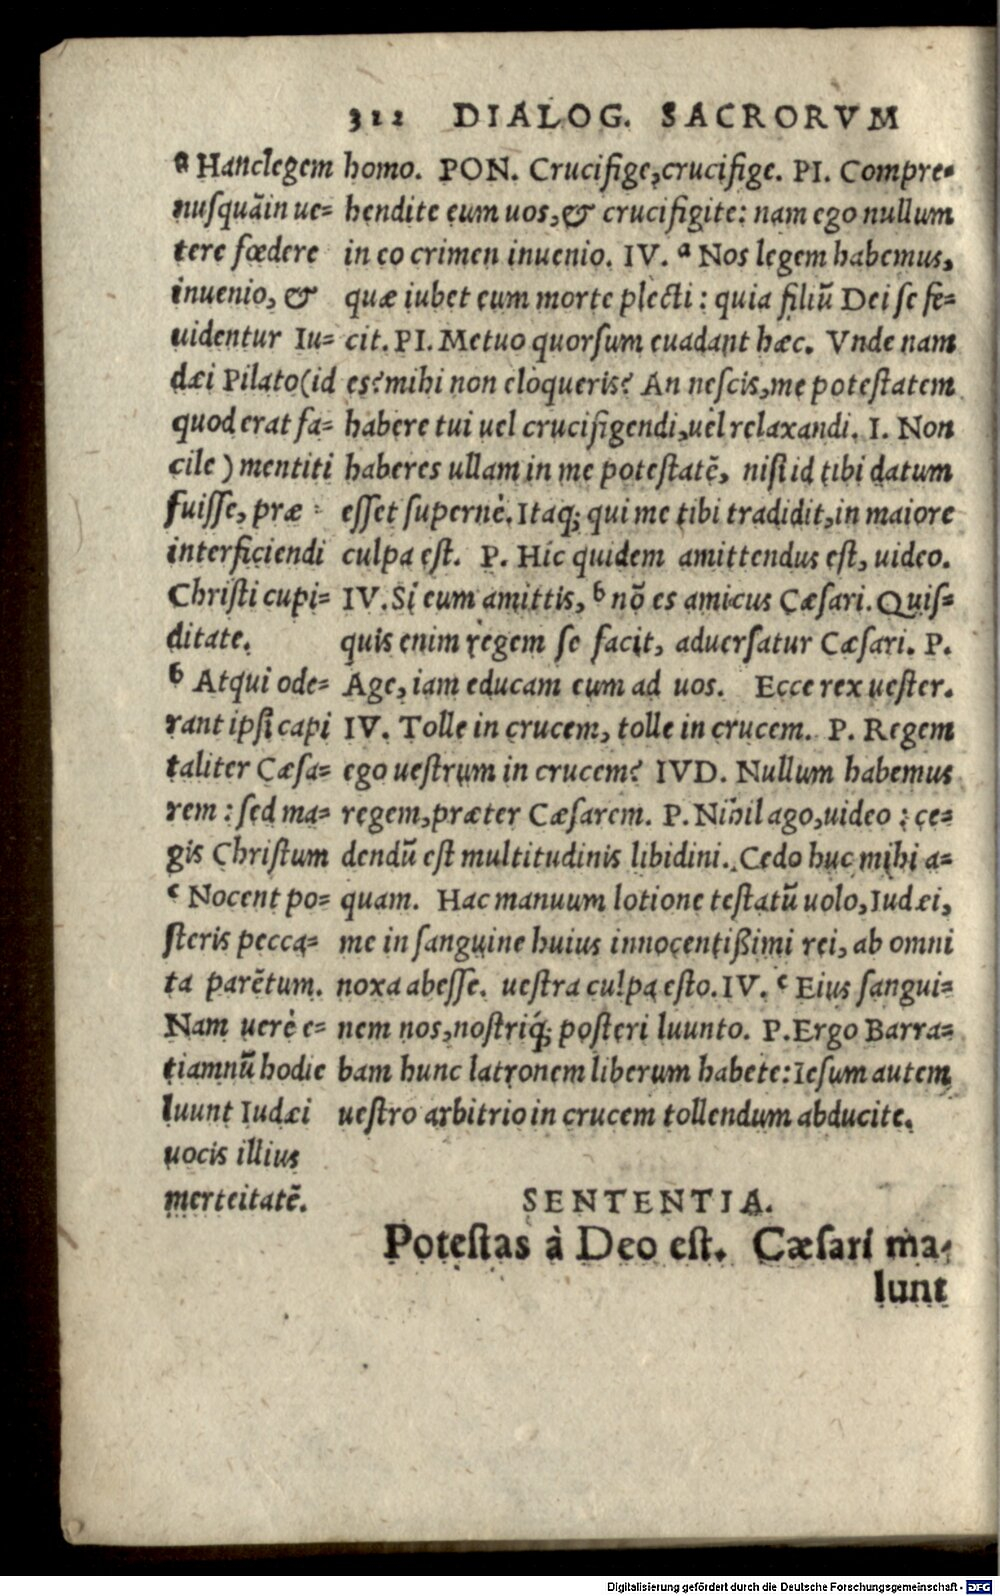 312 DIALOG. SACRORVM
homo. PON. Crucifige, crucifige. PI. Compre-
hendite eum uos, & crucifigite: nam ego nullum
in eo crimen inuenio. IV. ª Nos legem habemus,
quæ iubet eum morte plecti: quia filiũ Dei se fe-
cit. PI. Metuo quorsum euadant hæc. Vnde nam
es? mihi non eloqueris? An nescis, me potestatem
habere tui uel crucifigendi, uel relaxandi. I. Non
haberes ullam in me potestatẽ, nisi id tibi datum
esset supernè. Itaq; qui me tibi tradidit, in maiore
culpa est. P. Hic quidem amittendus est, uideo.
IV. Si eum amittis, ᵇ nõ es amicus Cæsari. Quis-
quis enim regem se facit, aduersatur Cæsari. P.
Age, iam educam eum ad uos. Ecce rex uester.
IV. Tolle in crucem, tolle in crucem. P. Regem
ego uestrum in crucem? IVD. Nullum habemus
regem, præter Cæsarem. P. Nihil ago, uideo: ce-
dendũ est multitudinis libidini. Cedo huc mihi a-
quam. Hac manuum lotione testatũ uolo, Iudæi,
me in sanguine huius innocentißimi rei, ab omni
noxa abesse. uestra culpa esto. IV. ᶜ Eius sangui-
nem nos, nostriq́; posteri luunto. P. Ergo Barra-
bam hunc latronem liberum habete: Iesum autem
uestro arbitrio in crucem tollendum abducite.
ª Hanc legem
nusquã inue-
tere fœdere
inuenio, &
uidentur Iu-
dæi Pilato (id
quod erat fa-
cile) mentiti
fuisse, præ
interficiendi
Christi cupi-
ditate.
ᵇ Atqui ode-
rant ipsi capi
taliter Cæsa-
rem: sed ma-
gis Christum
ᶜ Nocent po-
steris pecca-
ta parẽtum.
Nam uerè e-
tiamnũ hodie
luunt Iudæi
uocis illius
merteitatẽ.
SENTENTIA.
Potestas à Deo est. Cæsari ma-
lunt
Digitalisierung gefördert durch die Deutsche Forschungsgemeinschaft - DFG